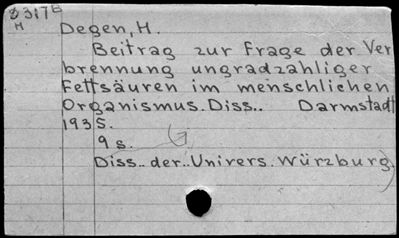 3317B
H
Degen, H.
Beitrag zur Frage der Ver
brennung ungradzahliger
Fettsäuren im menschlichen
Organismus. Diss.. Darmstadt
1935.
9 s.
Diss.. der.. Univers. Würzburg)